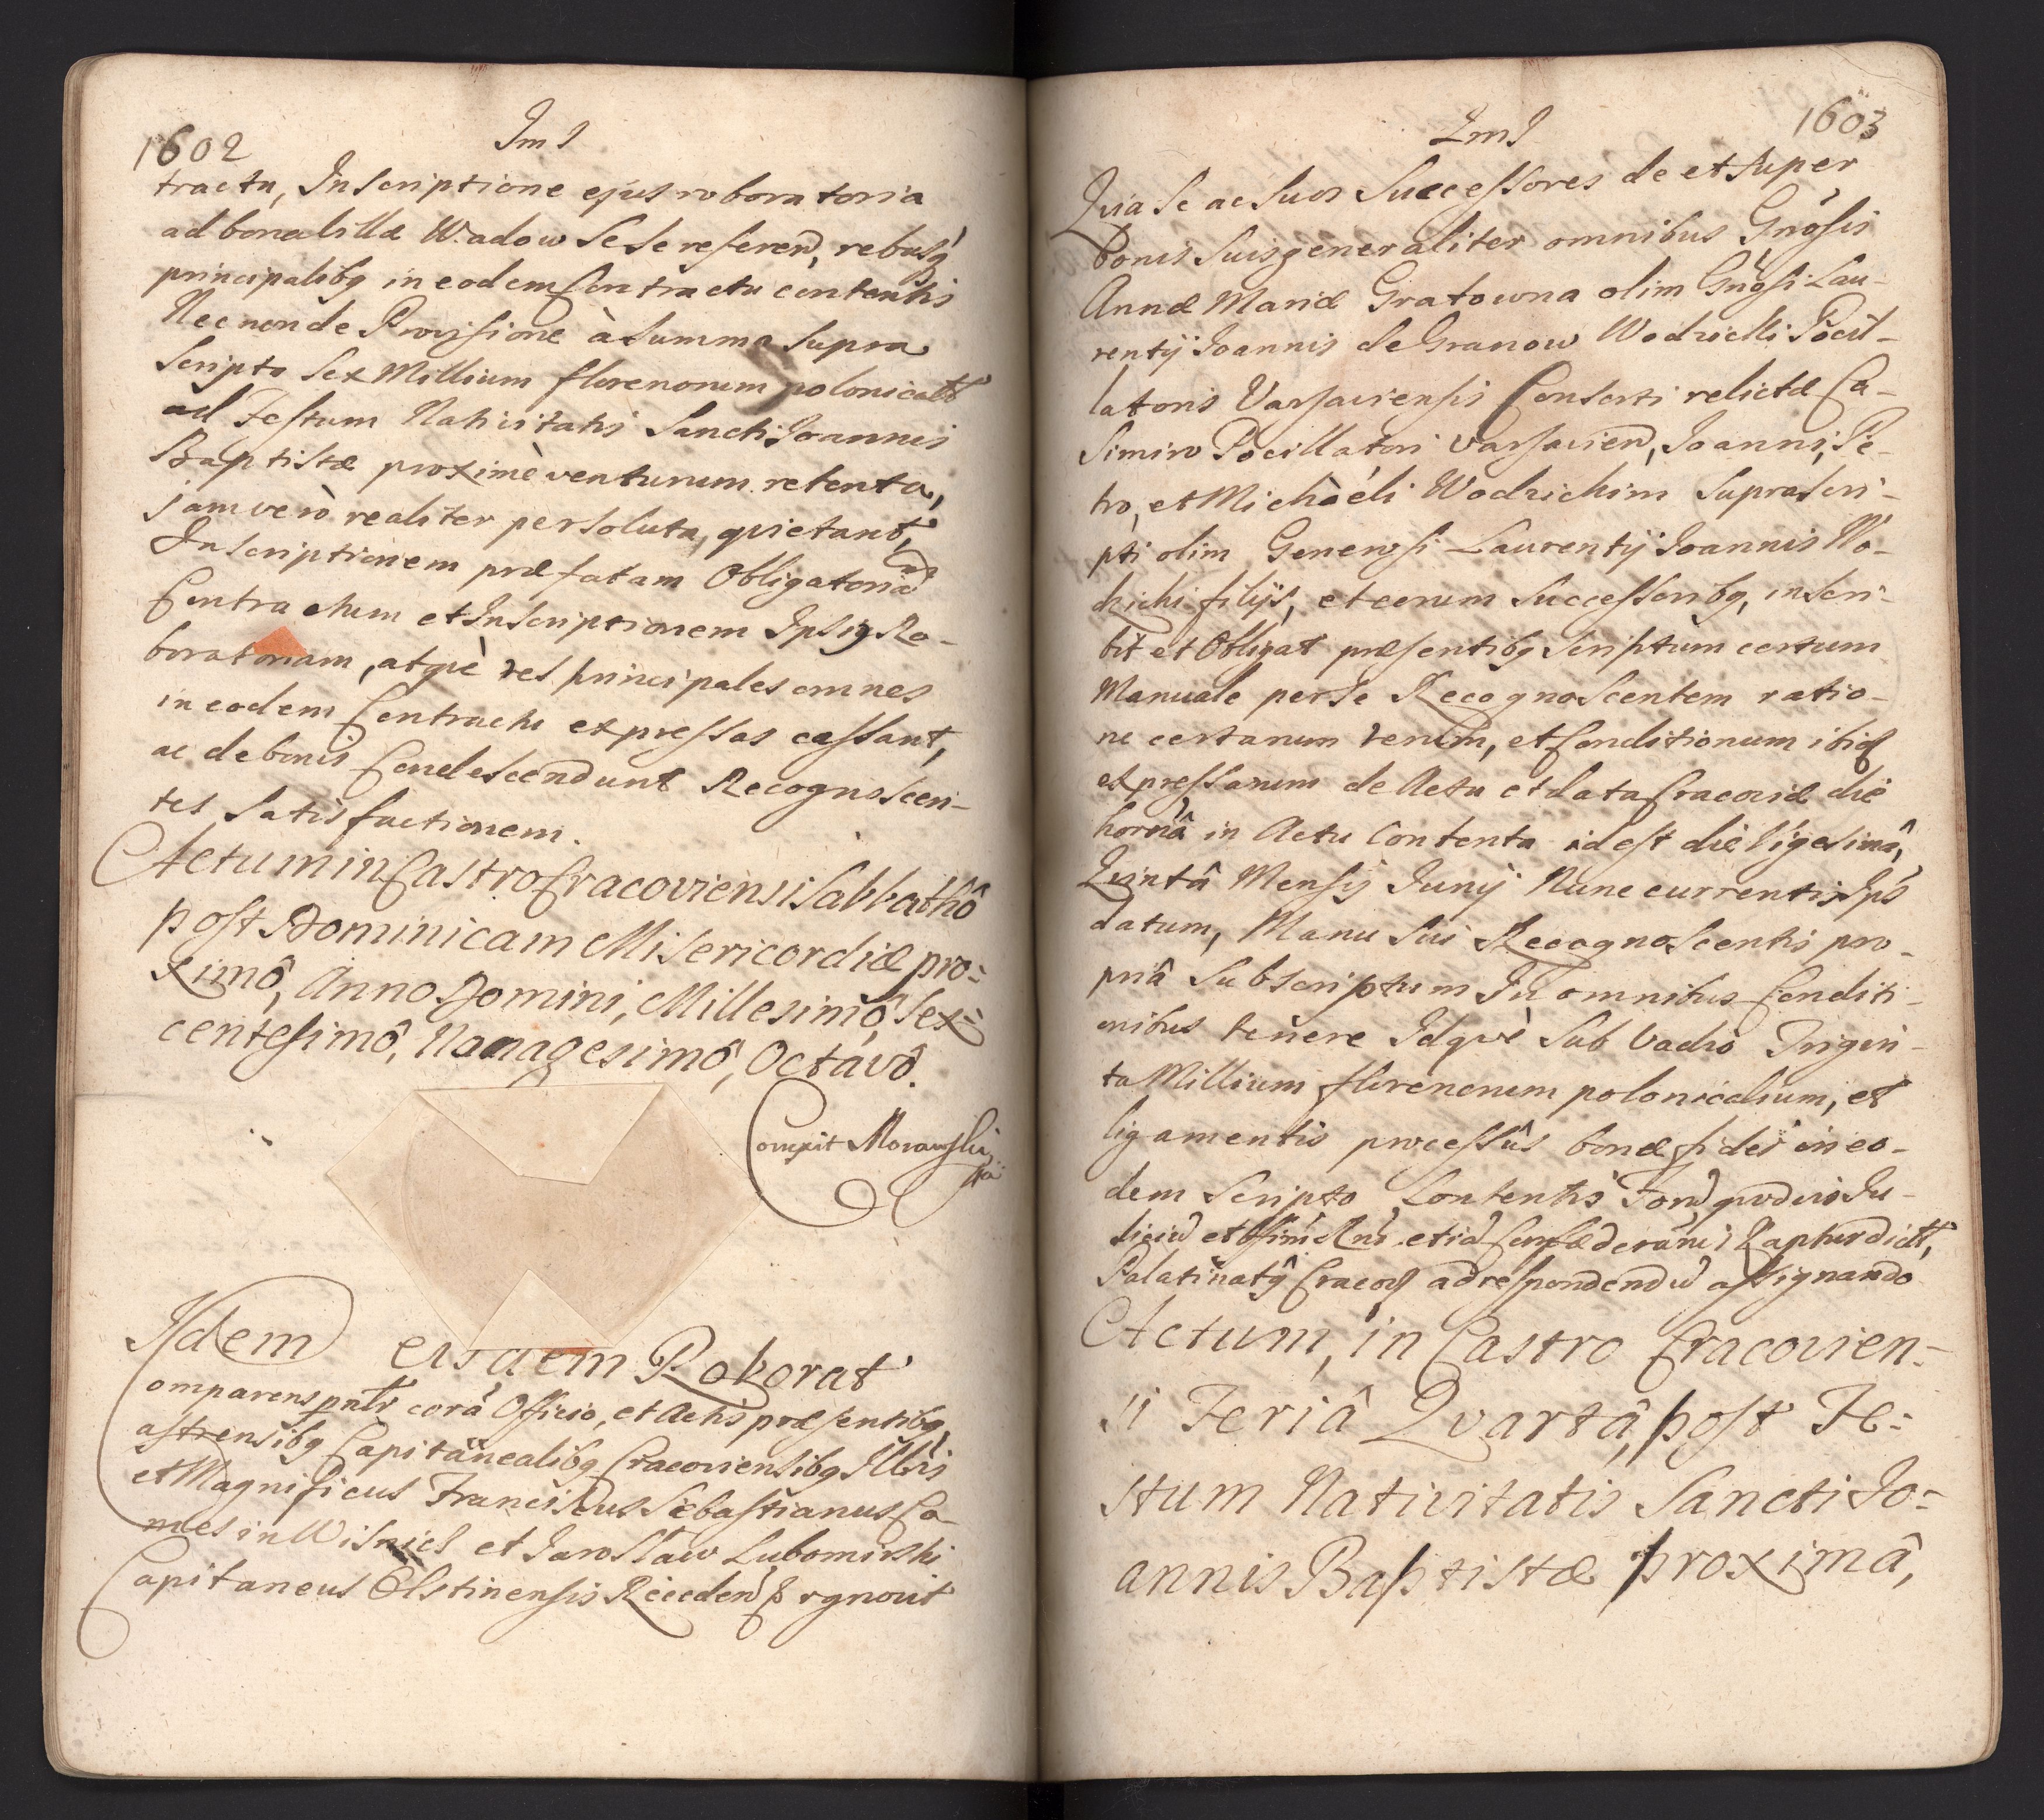 1602
ImS
tractu, Inscriptione ejus roboratoria
ad bona villæ Wadow Sese referen, rebusq
principalibq in eodem Contractu contentis
Nec non de Provisione à Summa Supra
Scripto Sex Millium florenorum polonicalt
ad Festum Nativitatis Sancti Joannis
Baptistæ proximè venturum retenta,
jam verò realiter persoluta, qvietant,
Inscriptionem præfatam Obligatoria
Contractum et Inscriptionem Ipsiq Ro-
boratoriam, atqvè res principales omnes
in eodem Contractu expressas cassant,
ac de bonis Condescendunt Recognoscen-
tes Satisfactionem.
Actum in Castro Cracoviensi Sabbathô
post Dominicam Misericordiæ pro=
ximô, Anno Domini, Millesimô, Sex=
centesimô, Nonagesimô, Octavô.
Idem eisdem Roborat
Comparens pntr corã Officio, et Actis præsentibq
Castrensibq Capitanealibq Cracoviensibq Illris
et Magnificus Franciscus Sebastianus Co-
mes in Wisnicz et Jarosław Lubomirski
Capitaneus Olstinensis Receden rgnovit
1603
ImS
Qvia Se ac Suos Successores de et Super
bonis Suis generaliter omnibus Gnosis
Annæ Mariæ Gratowna olim Gnosi Lau-
rentÿ Joannis de Granow Wodzicki Pocil-
latoris Varsaviensis Consorti relictæ Ca-
simiro Pocillatori Varsavien, Joanni, Pe-
tro, et Michaéli Wodzickim Suprascri-
pti olim Generosi Laurentÿ Joannis Wo-
dzicki filÿs, et eorum Successoribq, inscri-
bit et Obligat præsentibq Scriptum certum
Manuale per Se Recognoscentem ratio-
ne certarum rerum, et Conditionum ibid
expressarum de Actu et data Cracoviæ die
hornâ in Actu Contenta id est die Vigesimâ,
Qvintâ Mensis Junÿ Nunc currentis Ips
datum, Manu Sui Recognoscentis pro-
priâ Subscriptum In omnibus Conditi-
onibus tenere Idqvè Sub Vadio Trigin-
ta Millium florenorum polonicalium, et
ligamentis processûs bonæ fidei in eo-
dem Scripto Contentis Foro qvovis Ju-
diciu et etiã Confæderãni Kapturdictt,
Palatinatq Cracov ad respondendũ assignando
Actum, in Castro Cracovien=
si Feriâ Qvartâ, post Fe=
stum Nativitatis Sancti Jo=
annis Baptistæ proximâ,